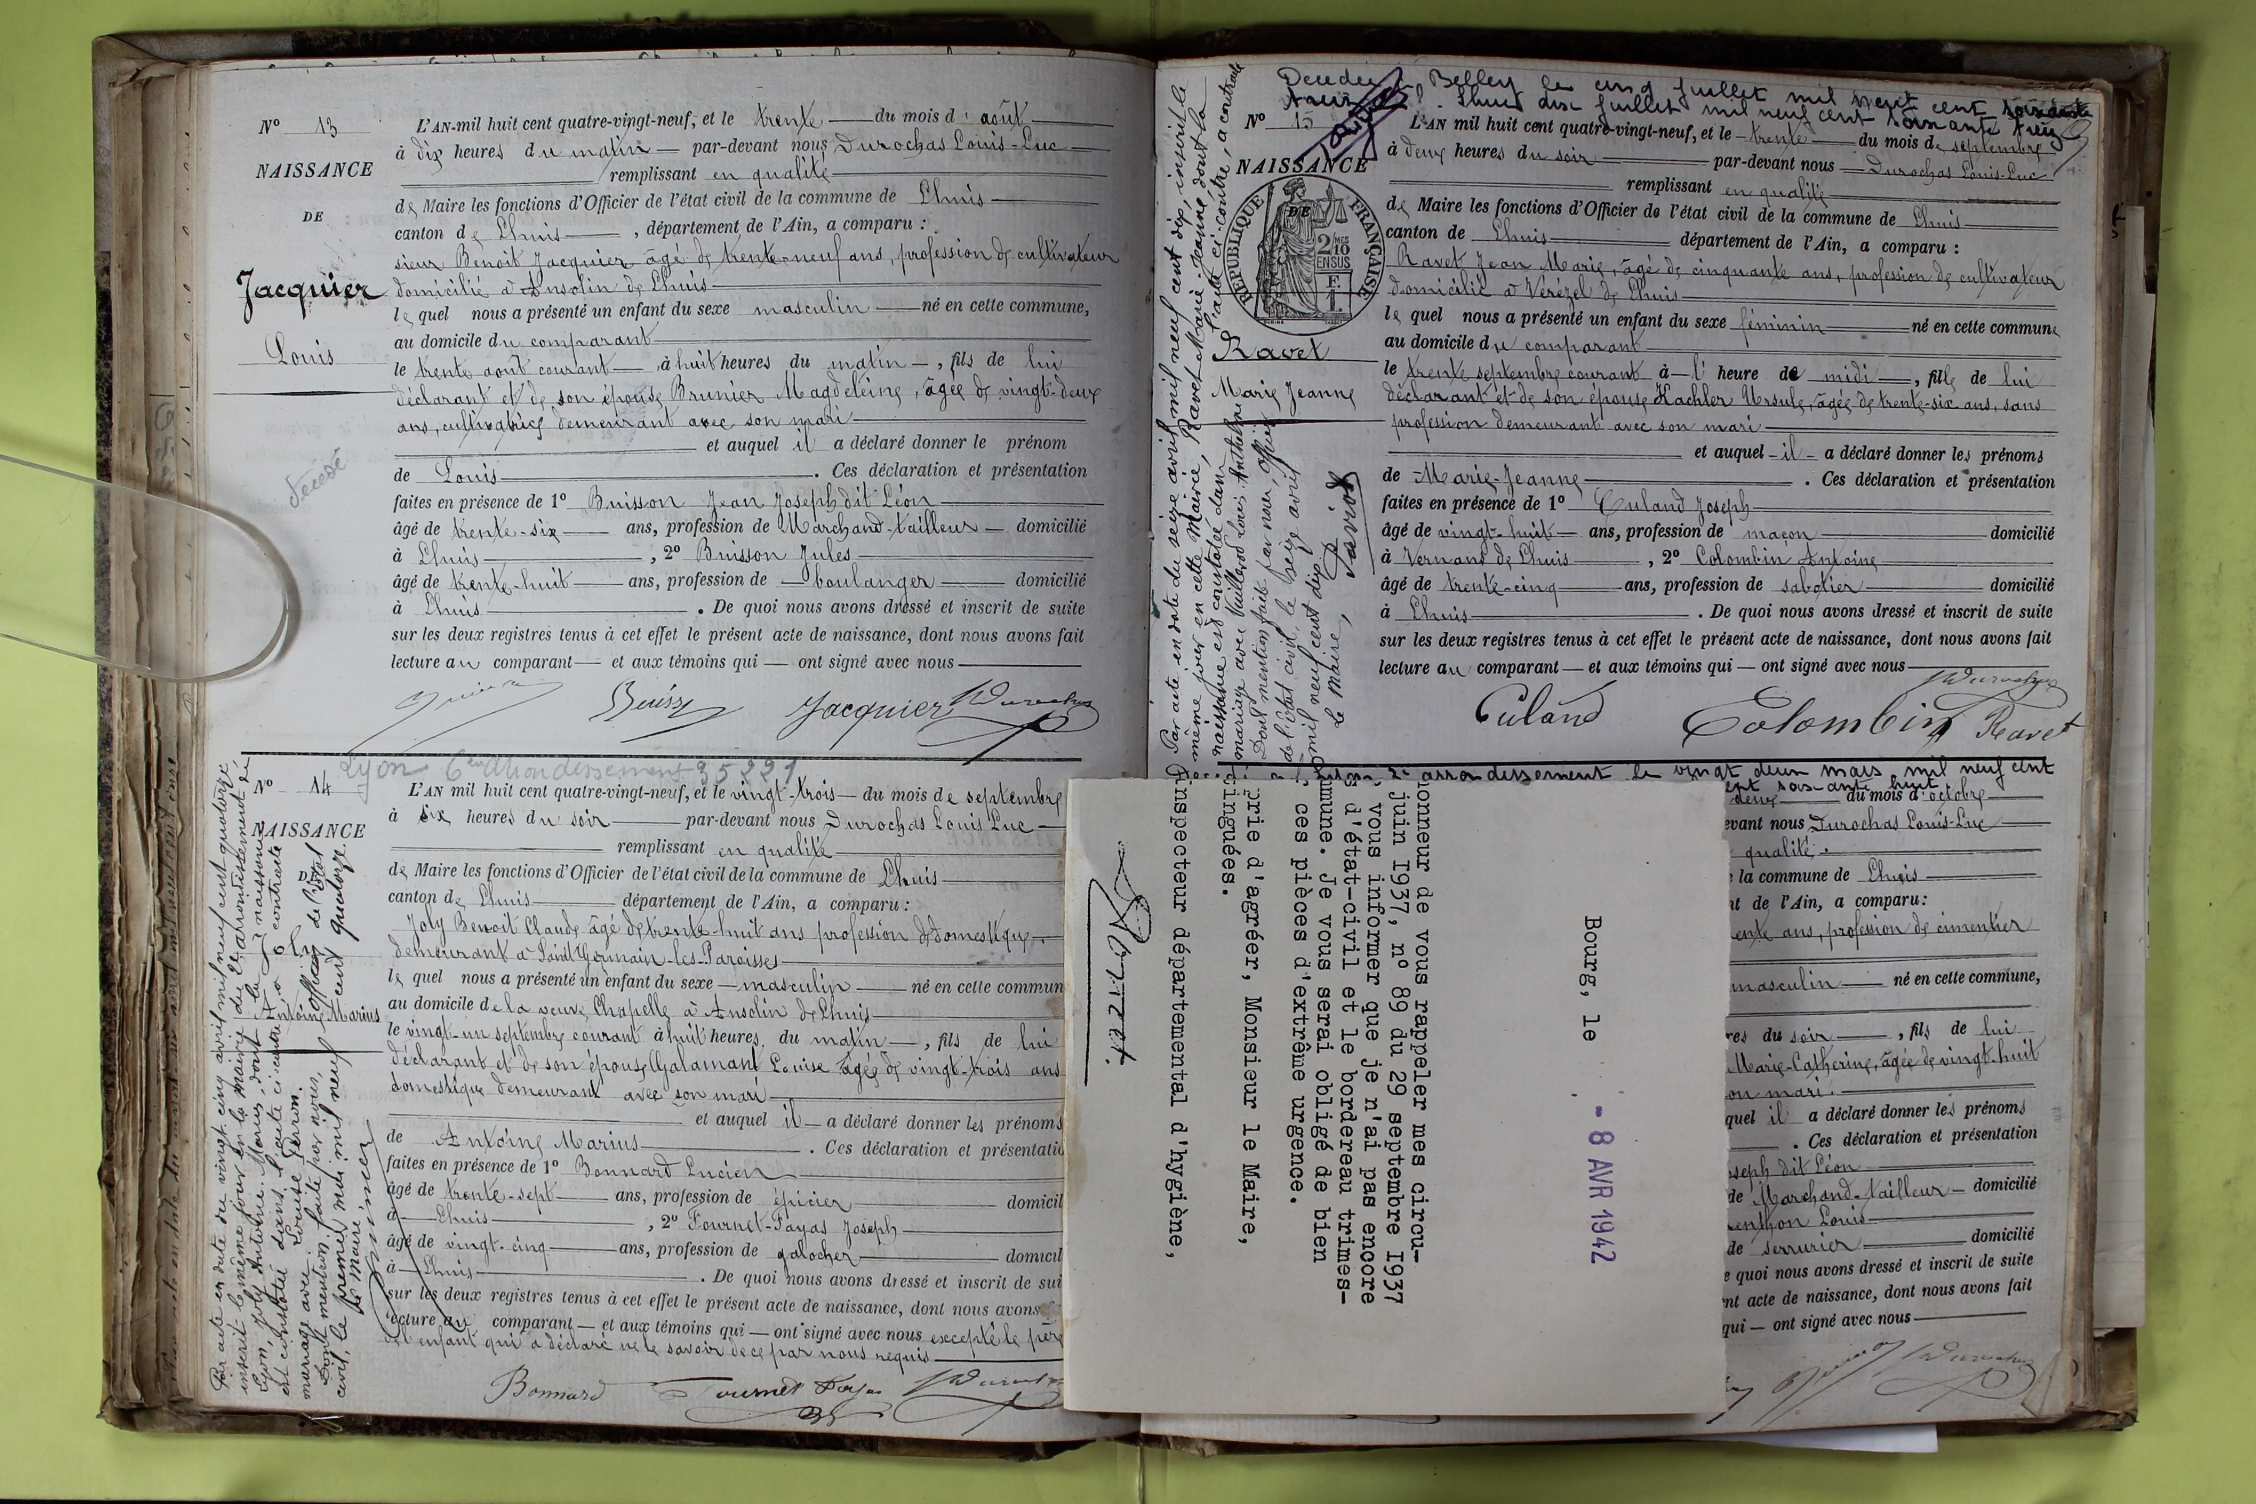 N° 13
NAISSANCE
DE
Jacquier
Louis
décédé
L'AN mil huit cent quatre-vingt-neuf, et le trente du mois d'août
à dix heures du matin par-devant nous Durochas Louis-Luc
remplissant en qualité
de Maire les fonctions d'Officier de l'état civil de la commune de Lhuis
canton de Lhuis, département de l'Ain, a comparu :
sieur Benoit Jacquier âgé de trente-neuf ans, profession de cultivateur
domicilié à Ansolin de Lhuis
lequel nous a présenté un enfant du sexe masculin né en cette commune,
au domicile du comparant
le trente août courant à huit heures du matin, fils de lui
déclarant et de son épouse Brunier Magdeleine, âgée de vingt-deux
ans, cultivatrice demeurant avec son mari
et auquel il a déclaré donner le prénom
de Louis. Ces déclaration et présentation
faites en présence de 1° Buisson Jean Joseph dit Léon
âgé de trente-six ans, profession de Marchand-tailleur domicilié
à Lhuis, 2° Buisson Jules
âgé de trente-huit ans, profession de boulanger domicilié
à Lhuis. De quoi nous avons dressé et inscrit de suite
sur les deux registres tenus à cet effet le présent acte de naissance, dont nous avons fait
lecture au comparant et aux témoins qui ont signé avec nous
Jacquier Durochas
Lyon 6em Arrondissement 95221
N° 14
NAISSANCE
Antoine Marius
L'AN mil huit cent quatre-vingt-neuf, et le vingt-trois du mois de septembre
à six heures du soir par-devant nous Durochas Louis Luc
remplissant en qualité
de Maire les fonctions d'Officier de l'état civil de la commune de Lhuis
canton de Lhuis département de l'Ain, a comparu :
Joly Benoit Claude âgé de trente-huit ans profession de domestique
demeurant à Saint Germain-les-Paroisses
lequel nous a présenté un enfant du sexe masculin né en cette commun
au domicile de la veuve Chapelle à Ansolin de Lhuis
le vingt-un septembre courant à huit heures du matin, fils de lui
déclarant et de son épouse Galamant Louise âgée de vingt-trois ans
domestique demeurant avec son mari
et auquel il a déclaré donner les prénoms
de Antoine Marius. Ces déclaration et présentatio
faites en présence de 1° Bonnard Lucien
âgé de trente-sept ans, profession de épicier domicil
à Lhuis, 2° Fournet-Fayas Joseph
âgé de vingt-cinq ans, profession de galocher domicil
à Lhuis. De quoi nous avons dressé et inscrit de sui
sur les deux registres tenus à cet effet le présent acte de naissance, dont nous avons
lecture au comparant et aux témoins qui ont signé avec nous excepté le père
de l'enfant qui a déclaré ne le savoir de ce par nous requis
Bonnard Fournet Fayas Durochas
Par acte en date du vingt cinq avril mil neuf cent quatorze
inscrit le même jour en la mairie du 2e arrondissement de
Lyon, Joly Antoine Marius, dont la naissance
est constatée dans l'acte ci-contre, a contracté
mariage avec Louise Perron.
Dont mention faite par nous, officier de l'état
civil, le premier mai mil neuf cent quatorze.
Le maire
Décédée à Belley le cinq juillet mil neuf cent soixante
treize. Lhuis dix juillet mil neuf cent soixante treize
N° 15
NAISSANCE
DE
RÉPUBLIQUE FRANÇAISE
2/10 EN SUS
Ravet
Marie Jeanne
L'AN mil huit cent quatre-vingt-neuf, et le trente du mois de septembre
à deux heures du soir par-devant nous Durochas Louis-Luc
remplissant en qualité
de Maire les fonctions d'Officier de l'état civil de la commune de Lhuis
canton de Lhuis département de l'Ain, a comparu :
Ravet Jean Marie, âgé de cinquante ans, profession de cultivateur
domicilié à Vérézel de Lhuis
lequel nous a présenté un enfant du sexe féminin né en cette commune
au domicile du comparant
le trente septembre courant à l'heure de midi, fille de lui
déclarant et de son épouse Kachler Ursule, âgée de trente-six ans, sans
profession demeurant avec son mari
et auquel il a déclaré donner les prénoms
de Marie-Jeanne. Ces déclaration et présentation
faites en présence de 1° Culand Joseph
âgé de vingt-huit ans, profession de maçon domicilié
à Vernand de Lhuis, 2° Colombin Antoine
âgé de trente-cinq ans, profession de sabotier domicilié
à Lhuis. De quoi nous avons dressé et inscrit de suite
sur les deux registres tenus à cet effet le présent acte de naissance, dont nous avons fait
lecture au comparant et aux témoins qui ont signé avec nous
Durochas
Culand Colombin Ravet
Par acte en date du seize avril mil neuf cent dix, inscrit le
même jour en cette mairie, Ravet Marie Jeanne dont la
naissance est constatée dans l'acte ci-contre, a contracté
mariage avec Vuillerod Louis Anthelme
Dont mention faite par nous, officier
de l'état civil, le seize avril
mil neuf cent dix
Le maire,
2e arrondissement le vingt deux mars mil neuf cent
soixante huit
deux du mois d'octobre
evant nous Durochas Louis-Luc
qualité
la commune de Lhuis
t de l'Ain, a comparu :
ente ans, profession de cimentier
masculin né en cette commune,
res du soir, fils de lui
Marie-Catherine, âgée de vingt-huit
on mari.
quel il a déclaré donner les prénoms
. Ces déclaration et présentation
seph dit Léon
de Marchand-tailleur domicilié
enthon Louis
de serrurier domicilié
e quoi nous avons dressé et inscrit de suite
nt acte de naissance, dont nous avons fait
qui ont signé avec nous
Durochas
Bourg, le - 8 AVR 1942
onneur de vous rappeler mes circu-
juin I937, n° 89 du 29 septembre I937
vous informer que je n'ai pas encore
s d'état-civil et le bordereau trimes-
mmune. Je vous serai obligé de bien
ces pièces d'extrême urgence.
prie d'agréer, Monsieur le Maire,
inguées.
inspecteur départemental d'hygiène,